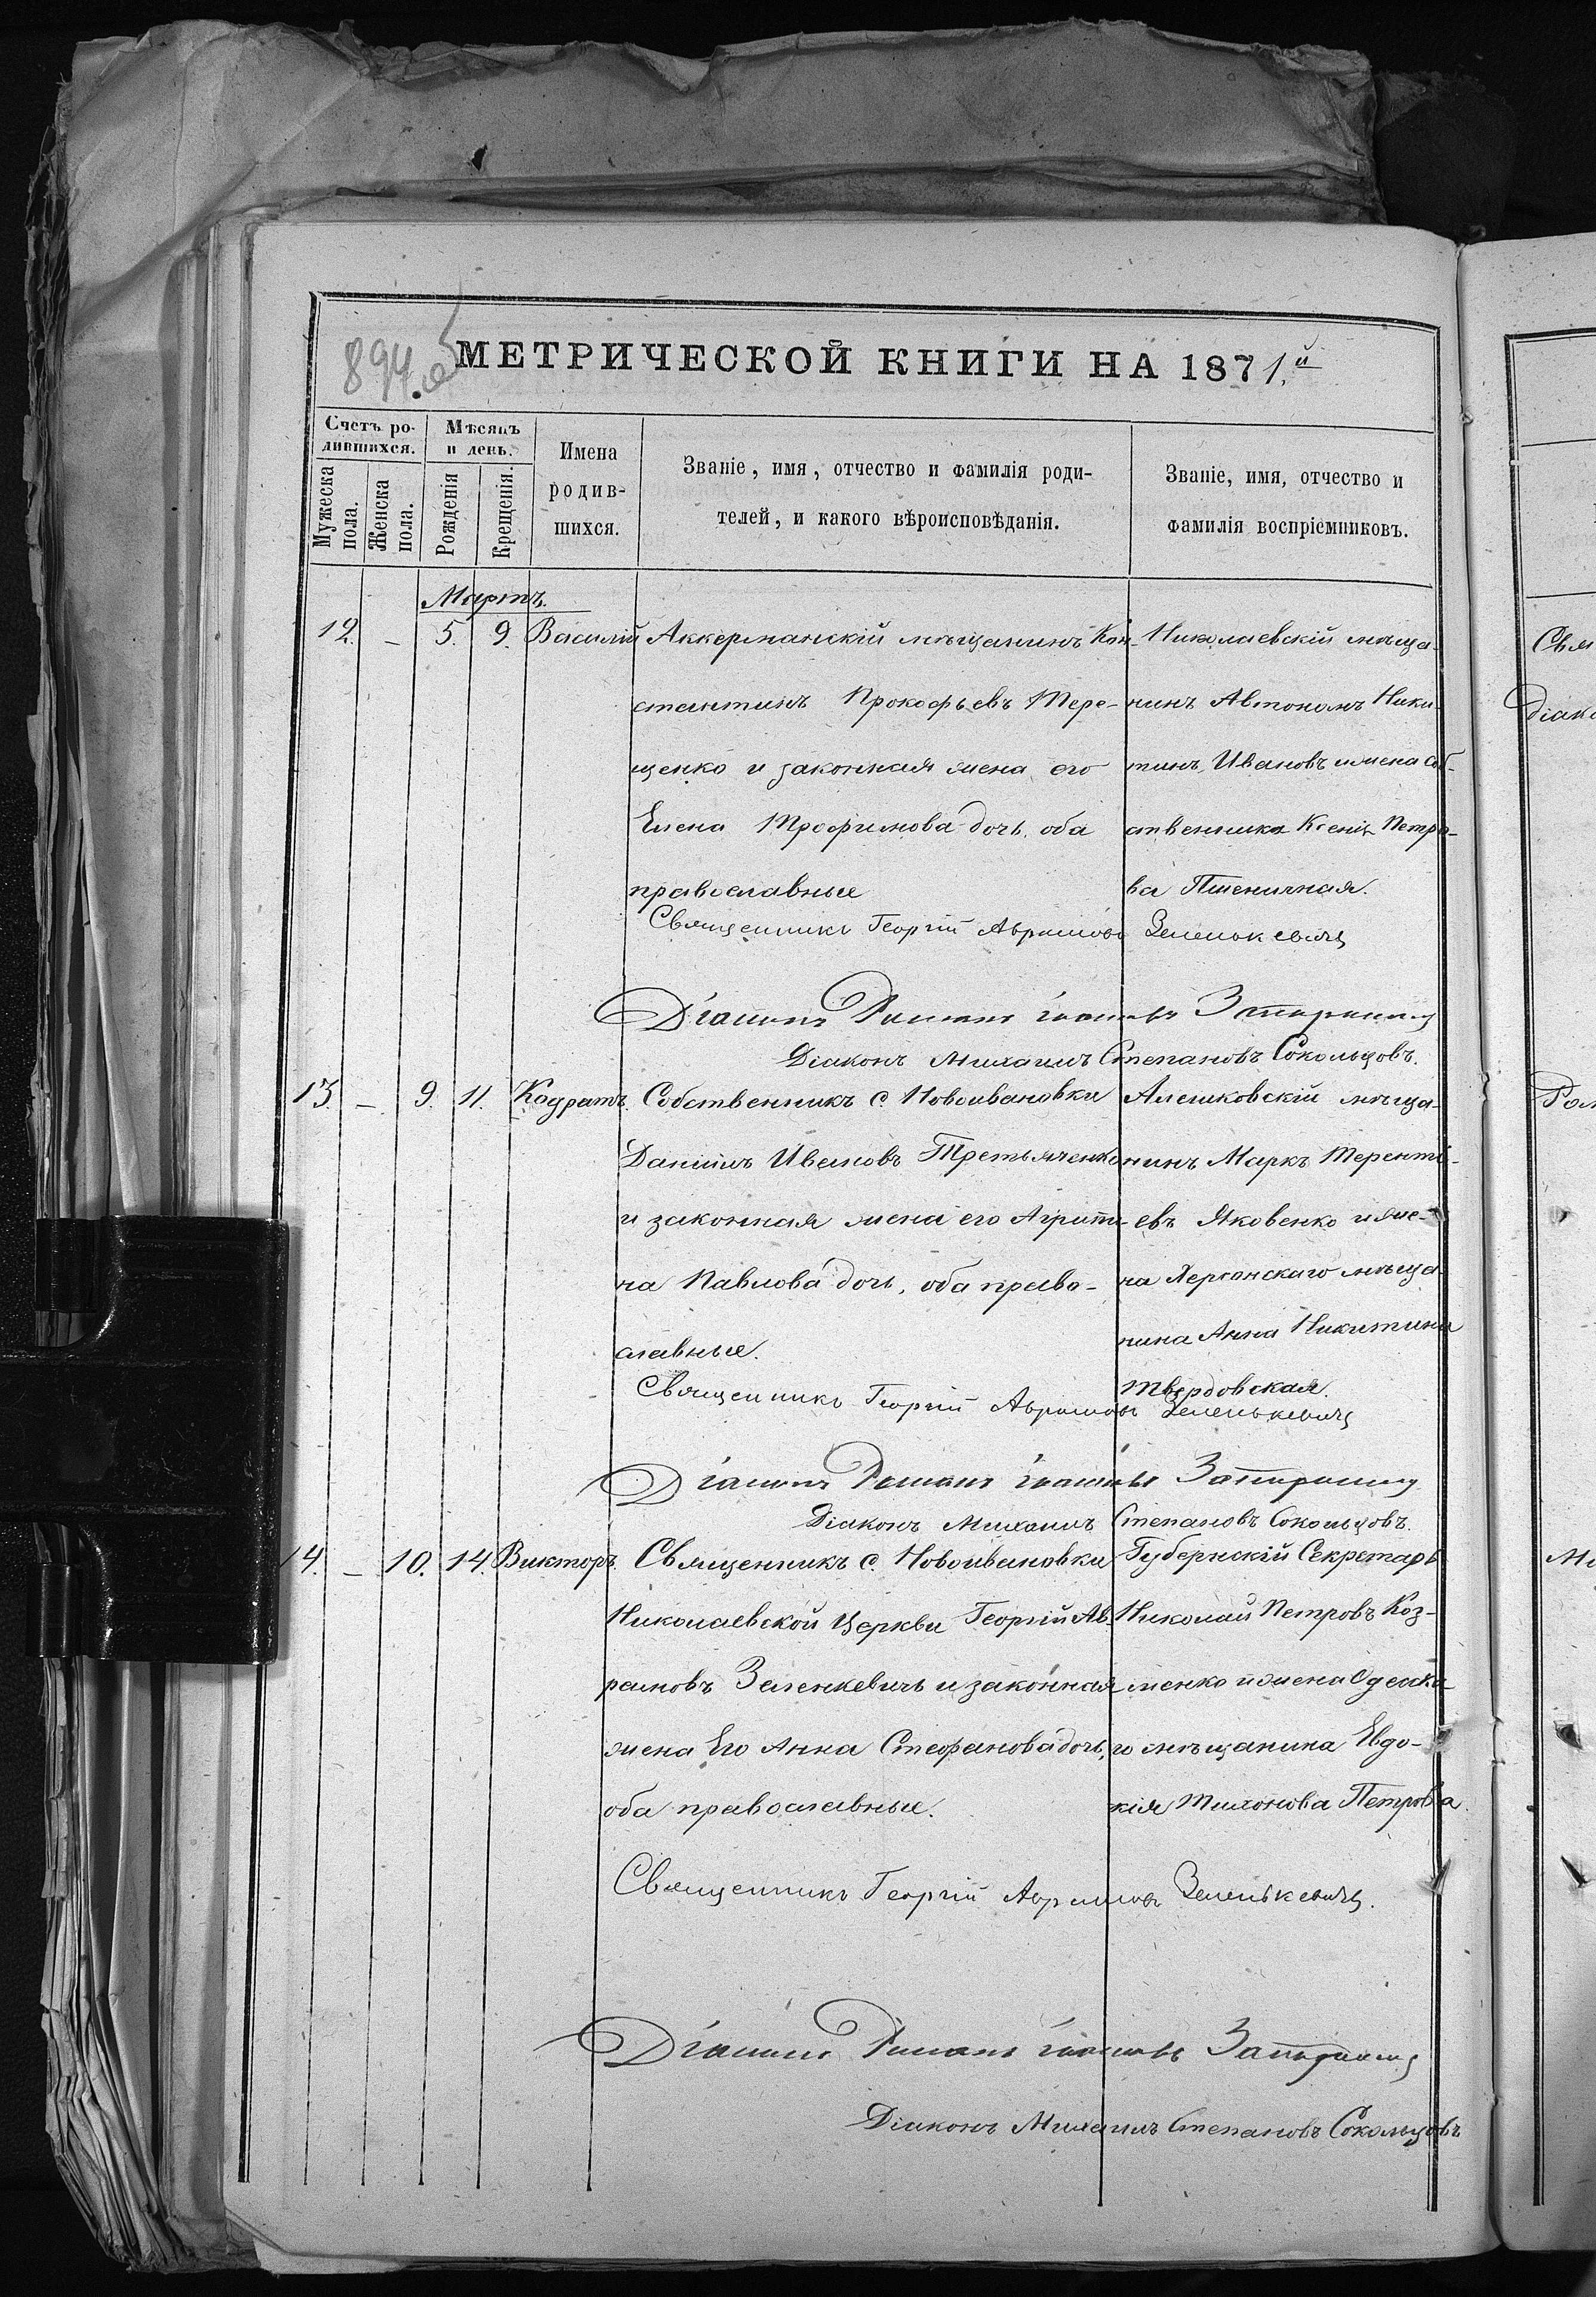 894.об
МЕТРИЧЕСКОЙ КНИГИ НА 1871.й
Счетъ ро-
дившихся.
Мѣсяцъ
и день.
Мужеска
пола.
Женска
пола.
Рожденія
Крещенія.
Имена
родив-
шихся.
Званіе, имя, отчество и фамилія роди-
телей, и какого вѣроисповѣданія.
Званіе, имя, отчество и
фамилія воспріемниковъ.
Мартъ.
12. – 5. 9. Василій Аккерманскій мѣщанинъ Кон-
стантинъ Прокофьевъ Тере-
щенко и законная жена его
Елена Трофимова дочь, оба
православные
Николаевскій мѣща-
нинъ Автономъ Ники-
тинъ Ивановъ и жена соб-
ственника Ксенія Петро-
ва Пшеничная.
Священникъ Георгій Аврамовъ Зеленькевичъ
Діаконъ Романъ
Діаконъ Михаилъ Степановъ Сокольцовъ.
13. – 9. 11. Кодратъ. Собственникъ с. Новоивановки
Даніилъ Ивановъ Третьяченко
и законная жена его Агрипи-
на Павлова дочь, оба право-
славные.
Алешковскій мѣща-
нинъ Маркъ Теренті-
евъ Яковенко и же-
на Херсонскаго мѣща-
нина Анна Никитина
Твердовская.
Священникъ Георгій Аврамовъ Зеленькевичъ
Діаконъ Романъ
Діаконъ Михаилъ Степановъ Сокольцовъ.
14. – 10. 14. Викторъ. Священникъ с. Новоивановки
Николаевской Церкви Георгій Ав-
рамовъ Зеленкевичъ и законная
жена Его Анна Стефанова дочь,
оба православные.
Губернскій Секретарь
Николай Петровъ Коз-
менко и жена Одесска
го мѣщанина Евдо-
кія Тихонова Петрова.
Священникъ Георгій Аврамовъ Зеленькевичъ.
Діаконъ Романъ
Діаконъ Михаилъ Степановъ Сокольцовъ